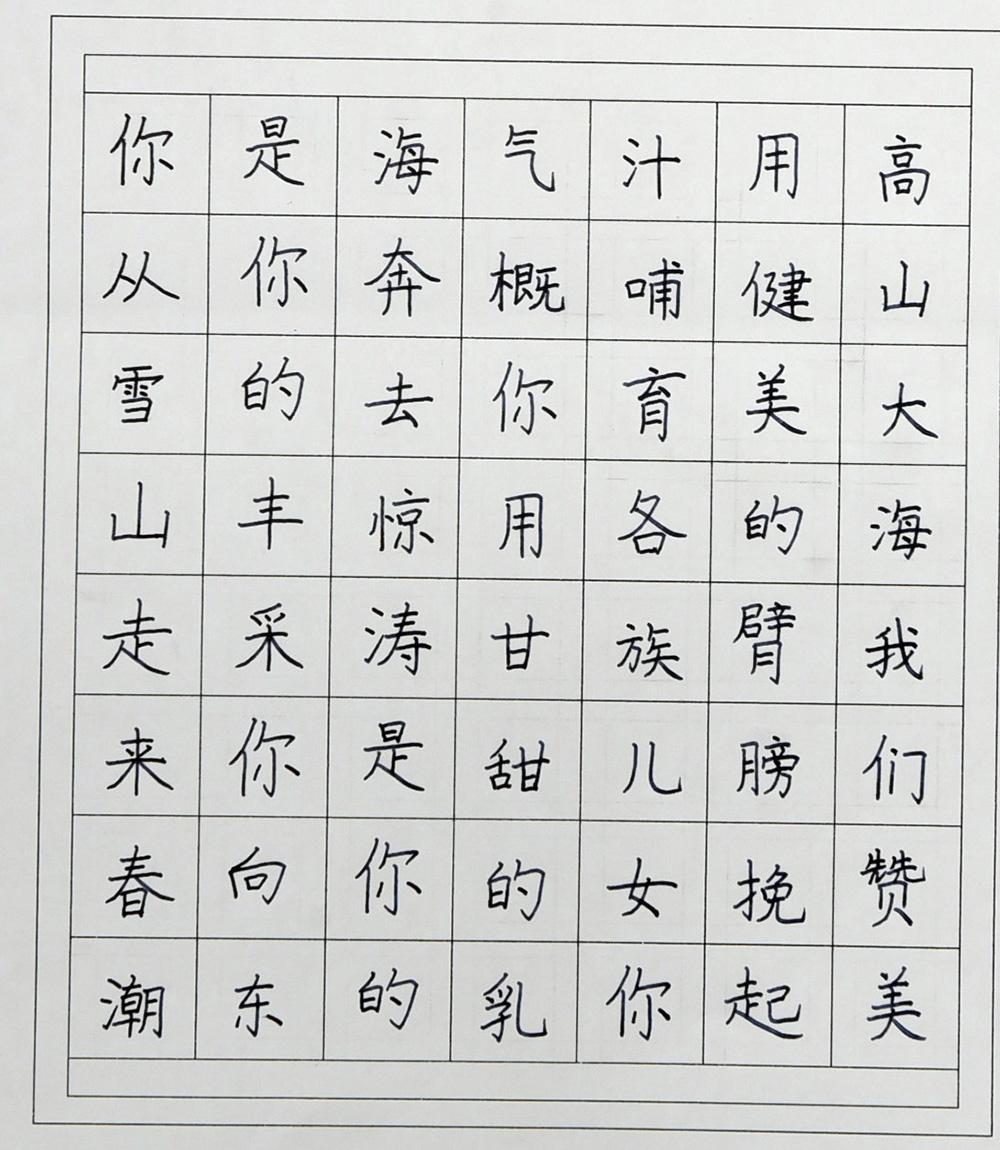 你从雪山走来春潮
是你的丰采你向东
海奔去惊涛是你的
气概你用甘甜的乳
汁哺育各族儿女你
用健美的臂膀挽起
高山大海我们赞美